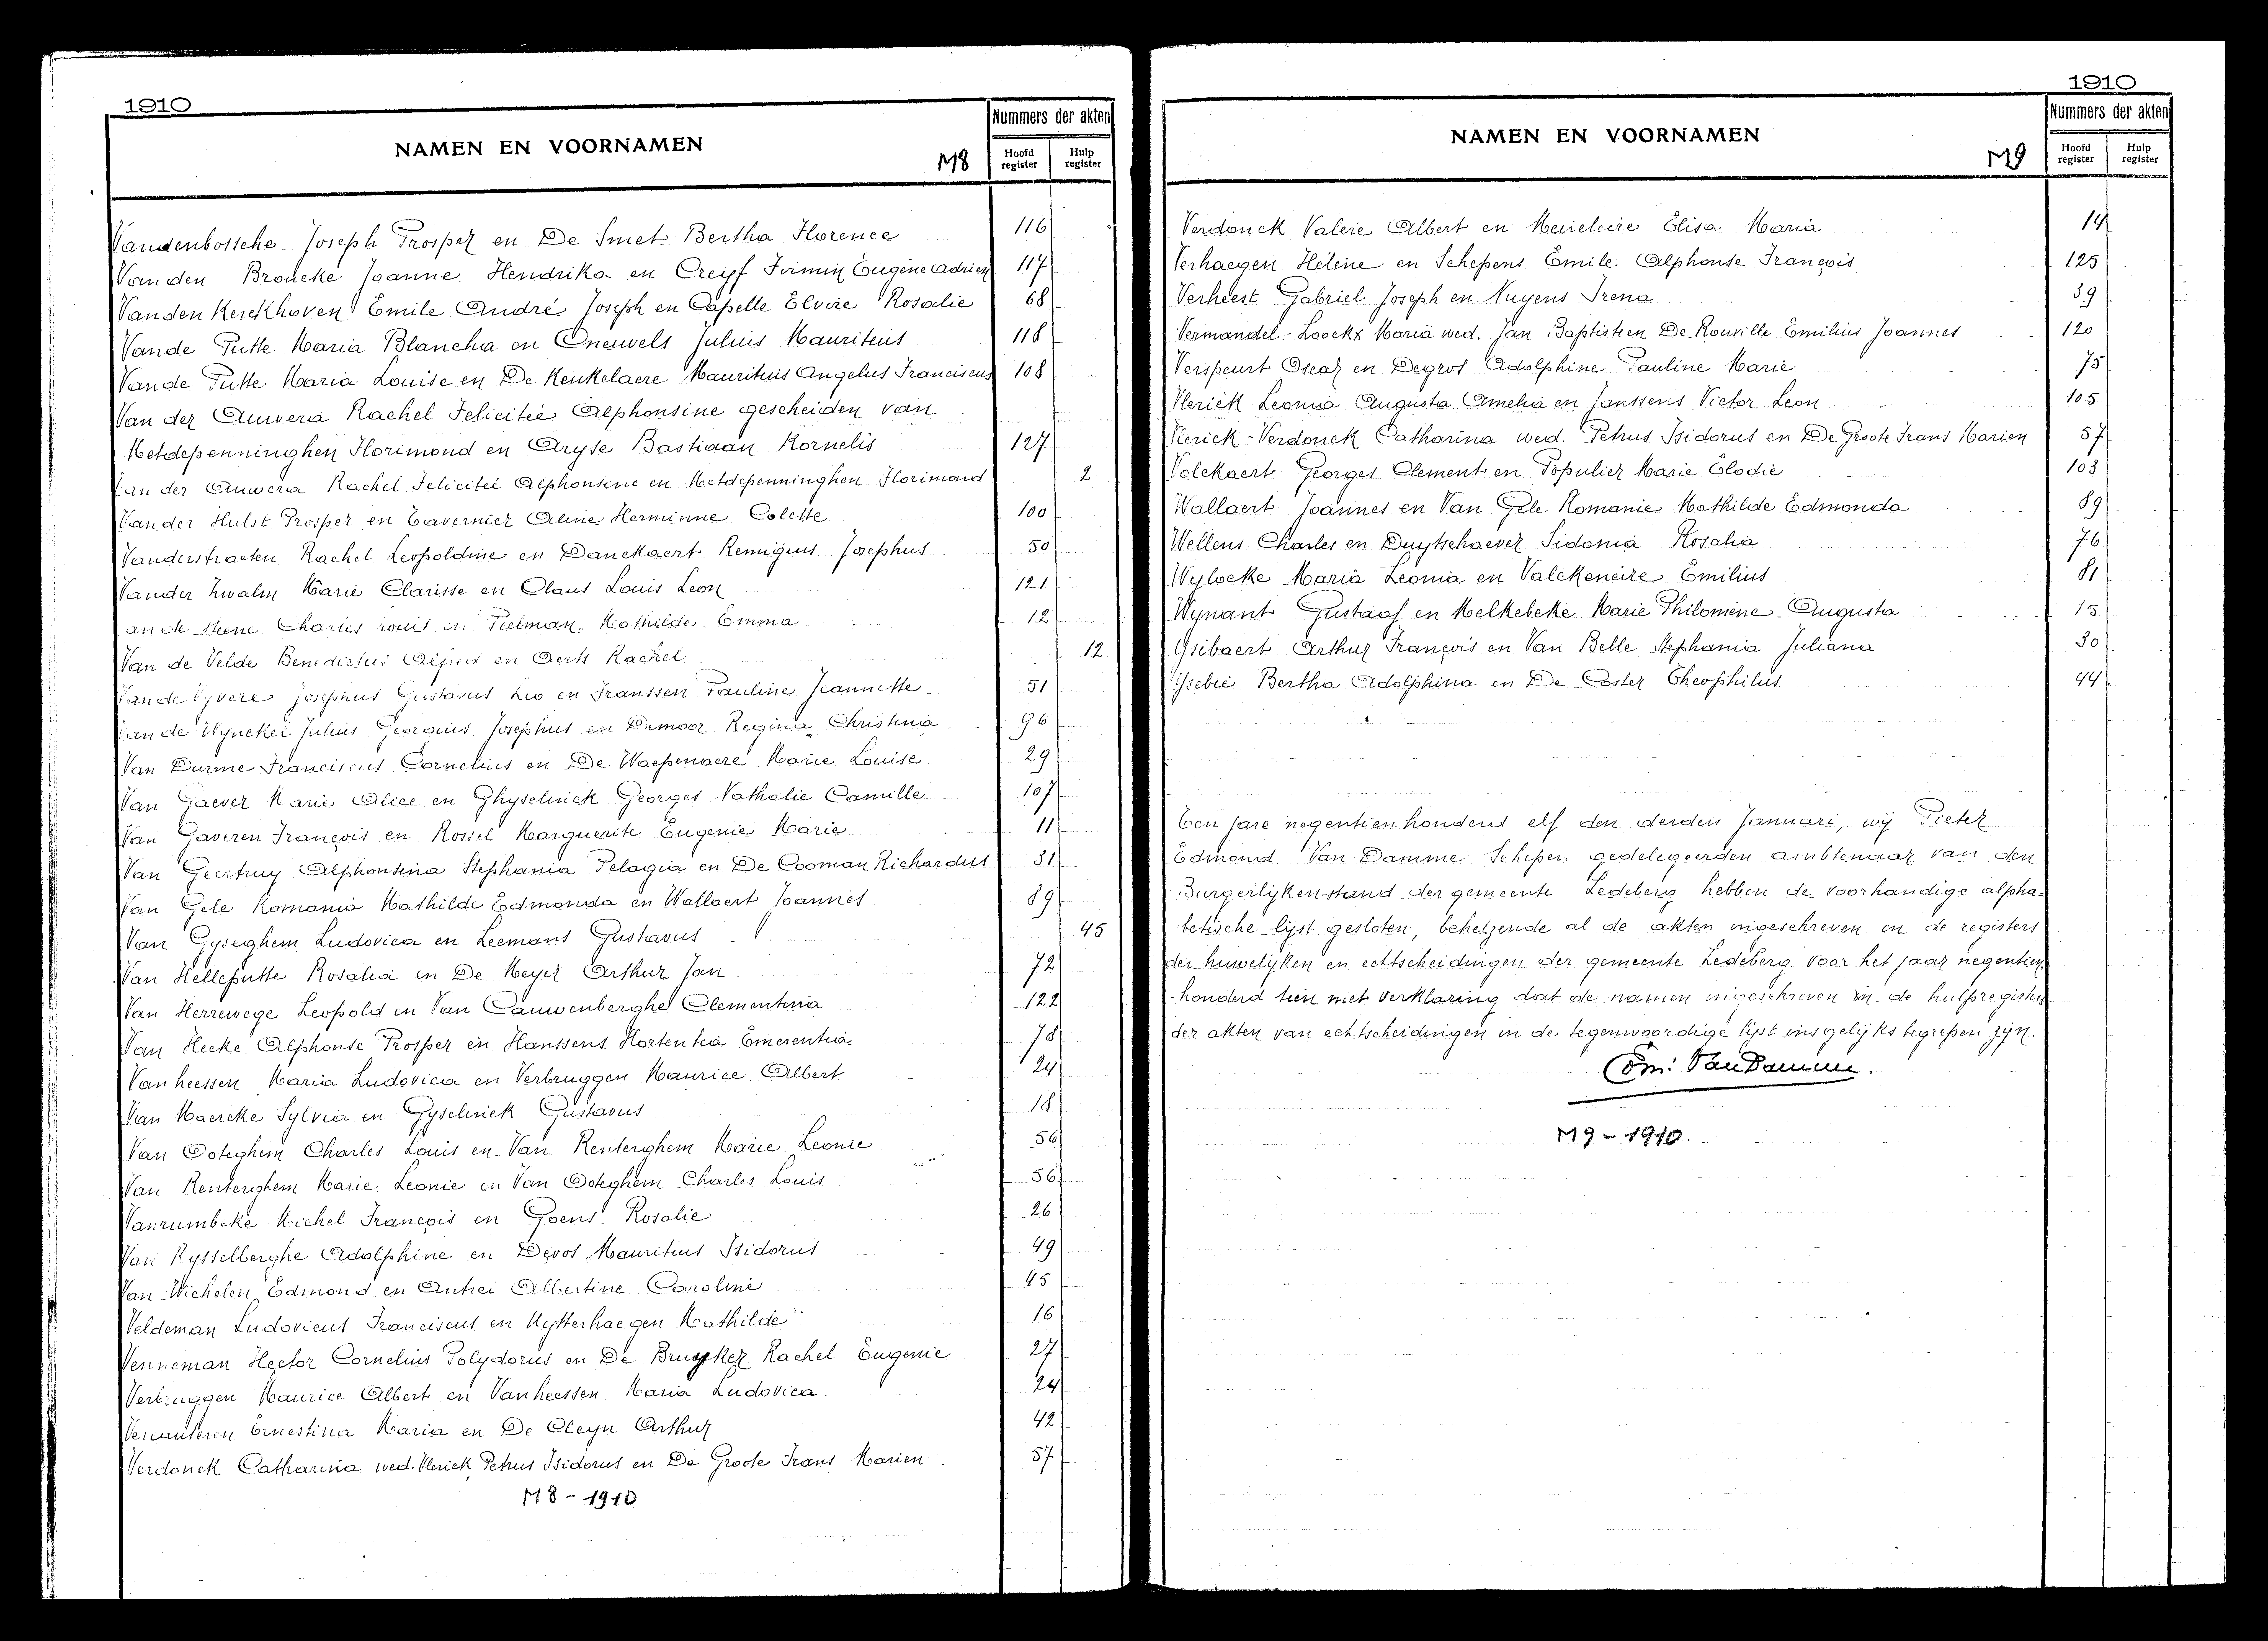 1910
NAMEN EN VOORNAMEN
M8
Nummers der akten
Hoofd register
Hulp register
Vandenbossche Joseph Prosper en De Smet Bertha Florence 116
Vanden Broucke Joanne Hendrika en Creyf Firmin Eugène Adrien 117
Vanden Kerckhoven Emile André Joseph en Capelle Elvire Rosalie 68
Vande Putte Maria Blancha en Cneuvels Julius Mauritius 118
Vande Putte Maria Louise en De Keukelaere Mauritius Angelus Franciscus 108
Van der Auwera Rachel Felicitée Alphonsine gescheiden van
Metdepenninghen Florimond en Aryse Bastiaan Kornelis 127
Van der Auwera Rachel Felicitée Alphonsine en Metdepenninghen Florimond 2
Van der Hulst Prosper en Tavernier Aline Herminne Colette 100
Vanderstraeten Rachel Leopoldine en Danckaert Remigius Josephus 50
Vander Zwalm Marie Clarisse en Claus Louis Leon 121
an de Steene Charles Louis en Pielman Mathilde Emma 12
Van de Velde Benedictus Alfred en Aerts Rachel 12
Van de Vyvere Josephus Gustavus Leo en Franssen Pauline Jeannette 51
Van de Wynckel Julius Georgius Josephus en Demoor Regina Christina 96
Van Durme Franciscus Cornelius en De Waepenaere Marie Louise 29
Van Gaever Marie Alice en Ghyselinck Georges Nathalie Camille 107
Van Gaveren François en Rossel Marguerite Eugenie Marie 11
Van Geertruy Alphonsina Stephania Pelagia en De Cooman Richardus 31
Van Gele Romania Mathilde Edmonda en Wallaert Joannes 89
Van Gyseghem Ludovica en Leemans Gustavus 45
Van Helleputte Rosalia en De Meyer Arthur Jan 72
Van Herrewege Leopold en Van Cauwenberghe Clementina 122
Van Hecke Alphonse Prosper en Hanssens Hortentia Emerentia 78
Vanheessen Maria Ludovica en Verbruggen Maurice Albert 24
Van Maercke Sylvia en Gyselinck Gustavus 18
Van Ooteghem Charles Louis en Van Renterghem Marie Leonie 56
Van Renterghem Marie Leonie en Van Ooteghem Charles Louis 56
Vanrumbeke Michel François en Goens Rosalie 26
Van Rysselberghe Adolphine en Devos Mauritius Isidorus 49
Van Wichelen Edmond en Autrei Albertine Caroline 45
Veldeman Ludovicus Franciscus en Uytterhaegen Mathilde 16
Venneman Hector Cornelius Polydorus en De Bruyker Rachel Eugenie 27
Verbruggen Maurice Albert en Vanheessen Maria Ludovica 24
Vercauteren Ernestina Maria en De Cleyn Arthur 42
Verdonck Catharina wed. Vlerick Petrus Isidorus en De Groote Frans Marien 57
M8 - 1910
1910
NAMEN EN VOORNAMEN
M9
Nummers der akten
Hoofd register
Hulp register
Verdonck Valère Albert en Meireleire Elisa Maria 14
Verhaegen Hélène en Schepens Emile Alphonse François 125
Verheest Gabriel Joseph en Nuyens Irena 39
Vermandel - Loockx Maria wed. Jan Baptist en De Rouville Emilius Joannes 120
Verspeurt Oscar en Degros Adolphine Pauline Marie 75
Vlerick Leonia Augusta Amelia en Janssens Victor Leon 105
Vlerick - Verdonck Catharina wed. Petrus Isidorus en De Groote Frans Marien 57
Volckaert Georges Clement en Populier Marie Elodie 103
Wallaert Joannes en Van Gele Romanie Mathilde Edmonda 89
Wellens Charles en Duytschaever Sidonia Rosalia 76
Wylocke Maria Leonia en Valckeneire Emilius 81
Wynant Gustaaf en Melkebeke Marie Philomène Augusta 15
Ysibaert Arthur François en Van Belle Stephania Juliana 30
Ysebie Bertha Adolphina en De Coster Theophilus 44
Ten jare negentien honderd elf den derden Januari, wij Pieter
Edmond Van Damme Schepen gedelegeerden ambtenaar van den
Burgerlijkenstand der gemeente Ledeberg hebben de voorhandige alpha-
betische lijst gesloten, behelzende al de akten ingeschreven in de registers
der huwelijken en echtscheidingen der gemeente Ledeberg voor het jaar negentien
honderd tien met verklaring dat de namen ingeschreven in de hulpregisters
der akten van echtscheidingen in de tegenwoordige lijst insgelijks begrepen zijn.
Edm. Van Damme.
M9 - 1910.